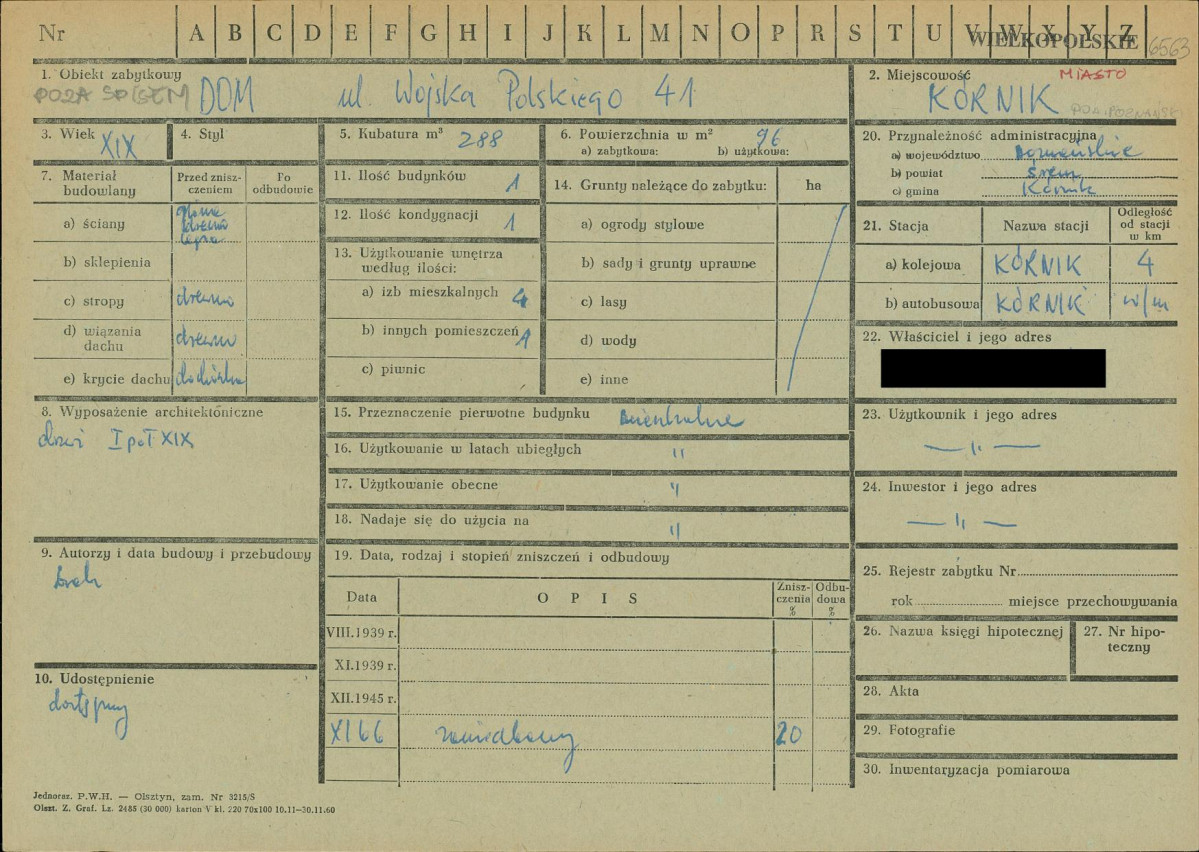 Nr A B C D E F G H I J K L M N O P R S T U V W X Y Z
WIELKOPOLSKIE 6563
1. Obiekt zabytkowy
POZA SPISEM DOM ul. Wojska Polskiego 41
2. Miejscowość MIASTO
KÓRNIK POW. POZNAŃSKI
3. Wiek XIX
4. Styl
5. Kubatura m³ 288
6. Powierzchnia w m² 96
a) zabytkowa: b) użytkowa:
7. Materiał budowlany
Przed zniszczeniem
Po odbudowie
a) ściany glina drewno
b) sklepienia
c) stropy drewno
d) wiązania dachu drewno
e) krycie dachu dachówka
8. Wyposażenie architektoniczne
drzwi I poł XIX
9. Autorzy i data budowy i przebudowy
brak
10. Udostępnienie
dostępny
11. Ilość budynków 1
12. Ilość kondygnacji 1
13. Użytkowanie wnętrza według ilości:
a) izb mieszkalnych 4
b) innych pomieszczeń 1
c) piwnic
14. Grunty należące do zabytku: ha
a) ogrody stylowe
b) sady i grunty uprawne
c) lasy
d) wody
e) inne
15. Przeznaczenie pierwotne budynku mieszkalne
16. Użytkowanie w latach ubiegłych "
17. Użytkowanie obecne "
18. Nadaje się do użycia na "
19. Data, rodzaj i stopień zniszczeń i odbudowy
Data OPIS Zniszczenia % Odbudowa %
VIII.1939 r.
XI.1939 r.
XII.1945 r.
XI 66 zaniedbany 20
20. Przynależność administracyjna
a) województwo poznańskie
b) powiat Śrem
c) gmina Kórnik
21. Stacja Nazwa stacji Odległość od stacji w km
a) kolejowa KÓRNIK 4
b) autobusowa KÓRNIK w/m
22. Właściciel i jego adres
23. Użytkownik i jego adres
— " —
24. Inwestor i jego adres
— " —
25. Rejestr zabytku Nr
rok miejsce przechowywania
26. Nazwa księgi hipotecznej
27. Nr hipoteczny
28. Akta
29. Fotografie
30. Inwentaryzacja pomiarowa
Jednoraz. P.W.H. — Olsztyn, zam. Nr 3215/S
Olszt. Z. Graf. Lz. 2485 (30 000) karton V kl. 220 70x100 10.11—30.11.60